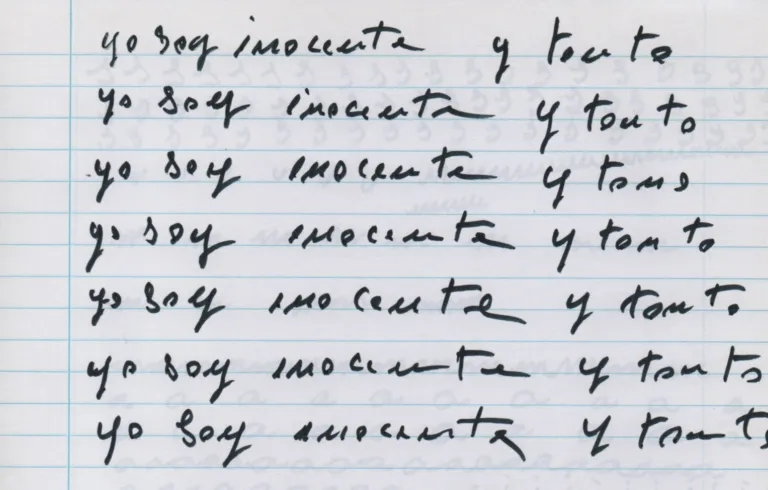 yo soy inocente y tonto
yo soy inocente y tonto
yo soy inocente y tono
yo soy inocente y tonto
yo soy inocente y tonto
yo soy inocente y tonto
yo soy inocente y tonto